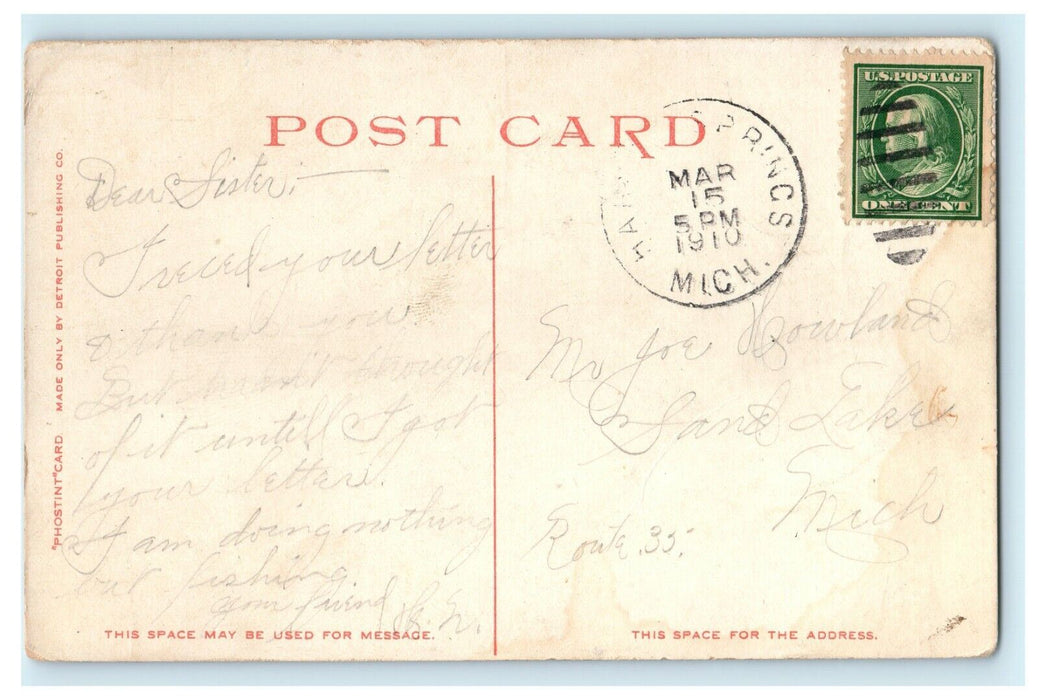 POST CARD
U.S. POSTAGE
ONE CENT
SPRINGS
MAR
15
5 PM
1910
MICH.
"PHOSTINT" CARD MADE ONLY BY DETROIT PUBLISHING CO.
Dear Sister;—
I reced your letter
& thank you
But hadn't thought
of it until I got
your letter.
I am doing nothing
but fishing.
your friend
THIS SPACE MAY BE USED FOR MESSAGE.
Mr Joe Howland
Sand Lake
Mich
Route 35.
THIS SPACE FOR THE ADDRESS.